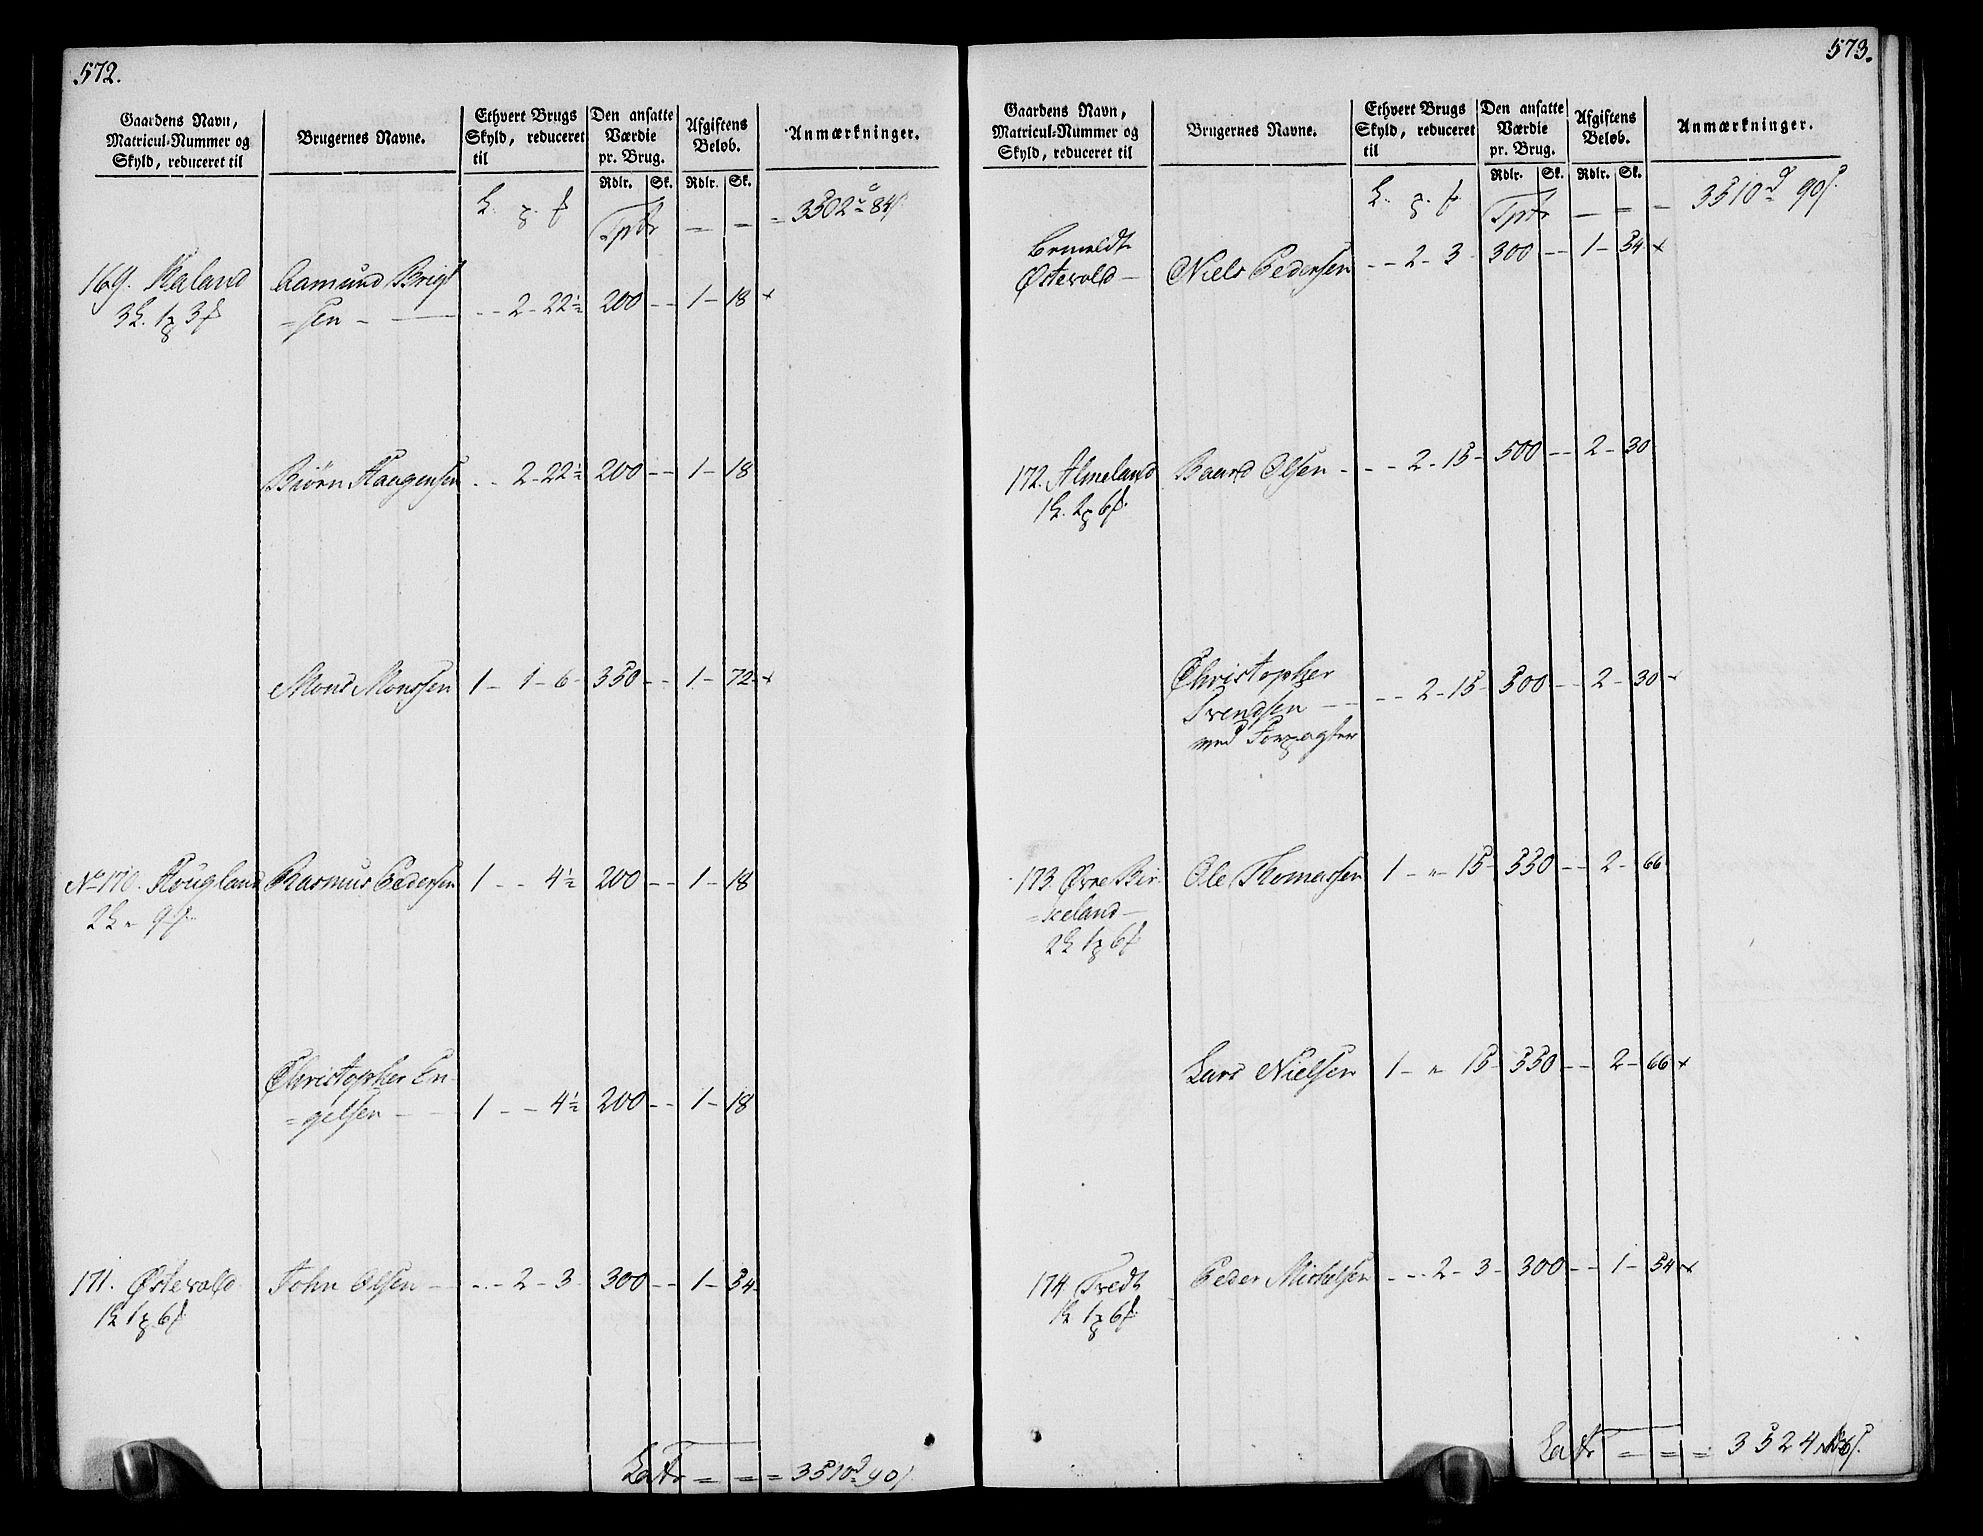 572.
Gaardens Navn, Matricul-Nummer og Skyld, reduceret til
Brugernes Navne.
Ethvert Brugs Skyld, reduceret til
Den ansatte Værdie pr. Brug.
Afgiftens Beløb.
Anmærkninger.
Rdlr. Sk. Rdlr. Sk.
Tptr — — 3502 84
169. Kaland Aamund Brigt
=sen — 2 - 22½ 200 -- 1 - 18 x
Biørn Haagensen -- 2 - 22½ 200 -- 1 - 18
Mons Monssen 1 - 1 - 6 - 350 -- 1 - 72 - x
No 170. Hougland Rasmus Pedersen 1 - - 4½ 200 -- 1 - 18
Christopher En
=gelsen — 1 - - 4½ 200 -- 1 - 18
171. Østevold John Olsen — 2 - 3 - 300 -- 1 - 54
Latr = = = 3510 90
573.
Gaardens Navn, Matricul-Nummer og Skyld, reduceret til
Brugernes Navne.
Ethvert Brugs Skyld, reduceret til
Den ansatte Værdie pr. Brug.
Afgiftens Beløb.
Anmærkninger.
Rdlr. Sk. Rdlr. Sk.
Tptr — — 3510 90
Bemeldte
Østevold — Niels Pedersen -- 2 - 3 - 300 -- 1 - 54 x
172. Almeland Baard Olsen - -- 2 - 15 - 500 -- 2 - 30
Christopher
Svendsen — 2 - 15 - 500 -- 2 - 30 x
med Forpagter
173. Øvre Bir
=keland — Ole Thomassen 1 - " 15 - 550 -- 2 - 66
Lars Nielsen 1 - " 15 - 550 -- 2 - 66 x
174. Tvedt Peder Michelsen -- 2 - 3 - 300 -- 1 - 54 x
Latr = = = 3524